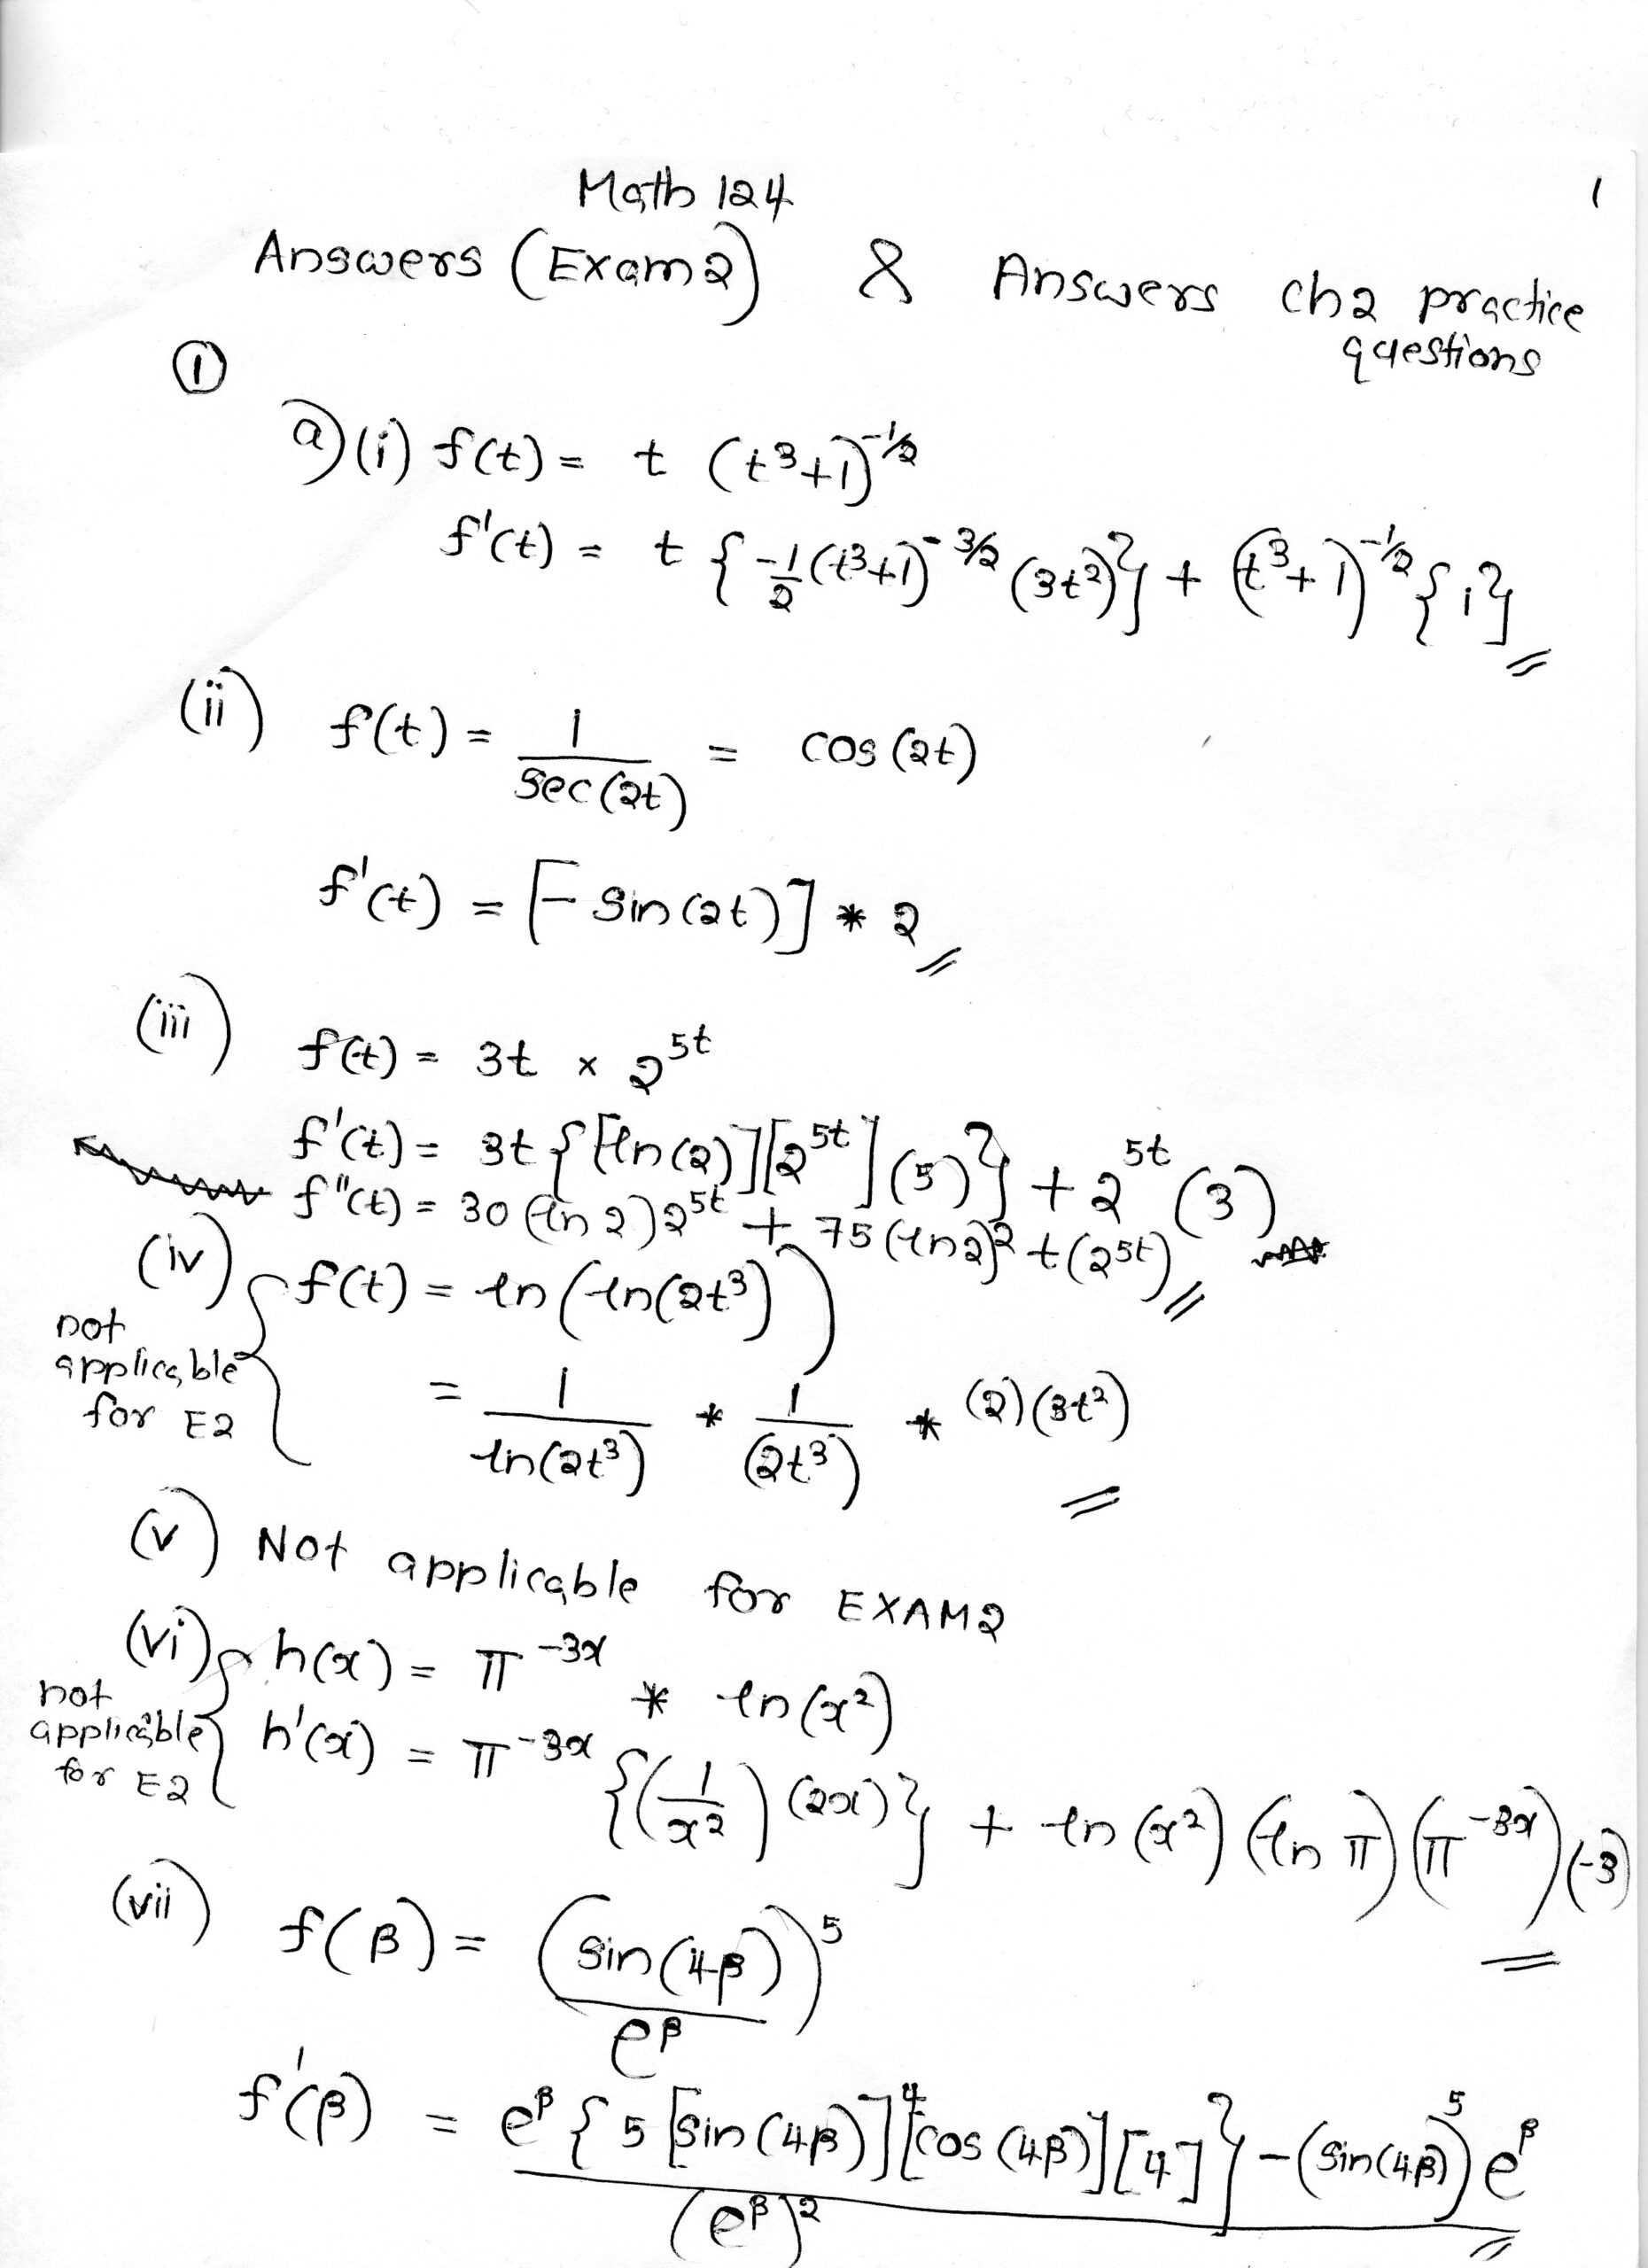 Math 124
1
Answers (Exam 2) & Answers ch 2 practice questions
①
a) (i) f(t) = t (t³+1)^(-1/2)
f'(t) = t { -1/2 (t³+1)^(-3/2) (3t²) } + (t³+1)^(-1/2) {1}
(ii) f(t) = 1/sec(2t) = cos(2t)
f'(t) = [-sin(2t)] * 2
(iii) f(t) = 3t × 2^(5t)
f'(t) = 3t { [ln(2)][2^(5t)] (5) } + 2^(5t) (3)
f''(t) = 30 (ln 2) 2^(5t) + 75 (ln 2)² t (2^(5t))
(iv) f(t) = ln(ln(2t³))
not applicable for E2
= 1/ln(2t³) * 1/(2t³) * (2)(3t²)
(v) Not applicable for EXAM2
(vi) h(x) = π^(-3x) * ln(x²)
not applicable for E2
h'(x) = π^(-3x) { (1/x²) (2x) } + ln(x²) (ln π) (π^(-3x)) (-3)
(vii) f(β) = (sin(4β))^5 / e^β
f'(β) = e^β { 5 [sin(4β)]^4 [cos(4β)] [4] } - (sin(4β))^5 e^β / (e^β)²